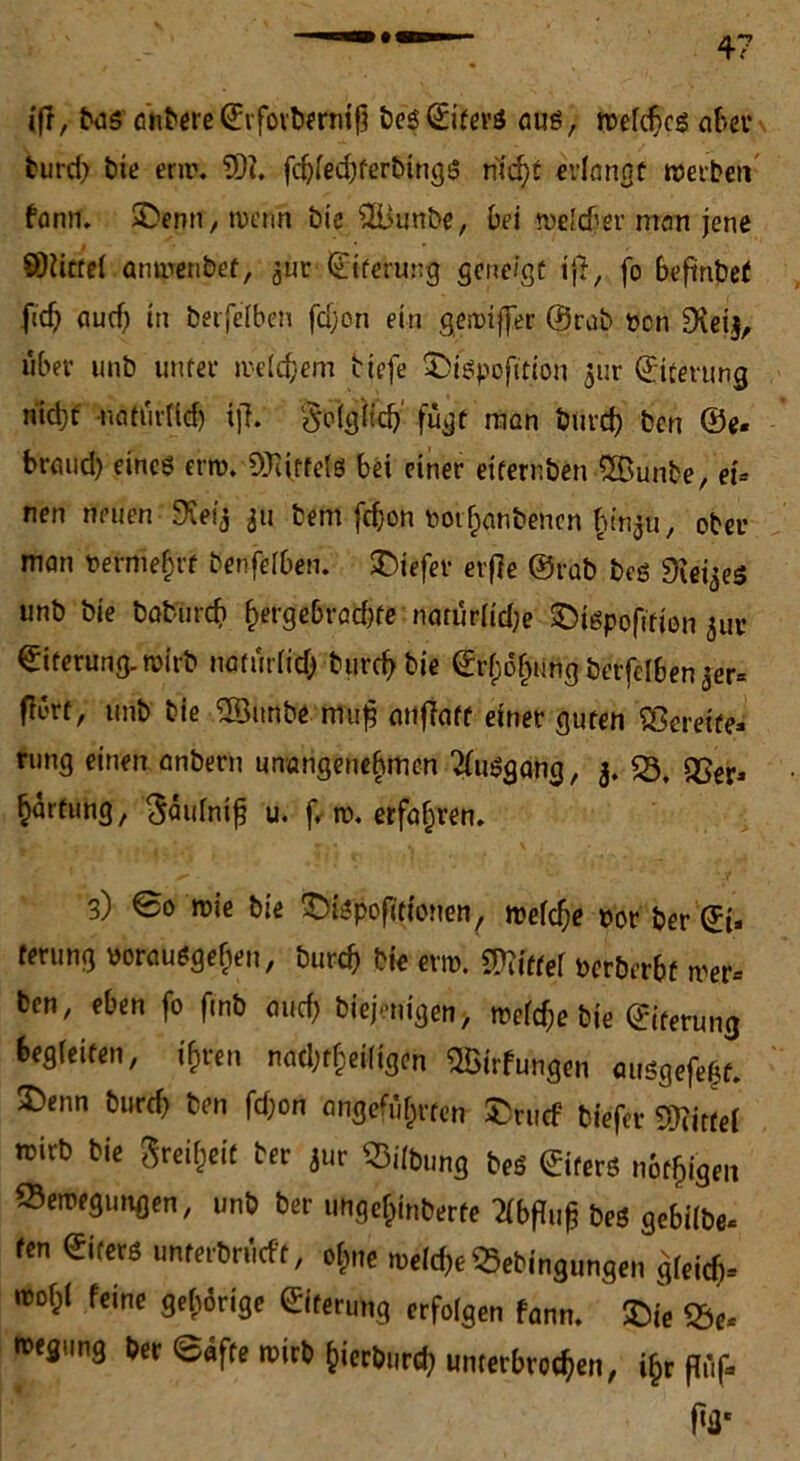 47
ist, das andere Erforderniß des Eiters aus, welches aber
durch die erw. M. schlechterdings nicht erlangt werden
kann. Denn, wenn die Wunde, bei welcher man jene
Mittel anwendet, zur Eiterung geneigt ist, so befindet
sich auch in derselben schon ein gewisser Grad von Reiz,
über und unter welchem diese Disposition zur Eiterung
nicht natürlich ist. Folglich fügt man durch den Ge-
brauch eines erw. Mittels bei einer eiternden Wunde, ei-
nen neuen Reiz zu dem schon vorhandenen hinzu, oder
man vermehrt denselben. Dieser erste Grad des Reizes
und die dadurch hergebrachte natürliche Disposition zur
Eiterung wird natürlich durch die Erhöhung derselben zer-
stört, und die Wunde muß anstatt einer guten Vereite-
rung einen andern unangenehmen Ausgang, z. B. Ver-
härtung, Fäulniß u. s. w. erfahren.
3) So wie die Dispositionen, welche vor der Ei-
terung vorausgehen, durch die erw. Mittel verderbt wer-
den, eben so sind auch diejenigen, welche die Eiterung
begleiten, ihren nachtheiligen Wirkungen ausgesetzt.
Denn durch den schon angeführten Druck dieser Mittel
wird die Freiheit der zur Bildung des Eiters nöthigen
Bewegungen, und der ungehinderte Abfluß des gebilde-
ten Eiters unterdrückt, ohne welche Bedingungen gleich-
wohl keine gehörige Eiterung erfolgen kann. Die Be-
wegung der Säfte wird hierdurch unterbrochen, ihr flüs-
sig-